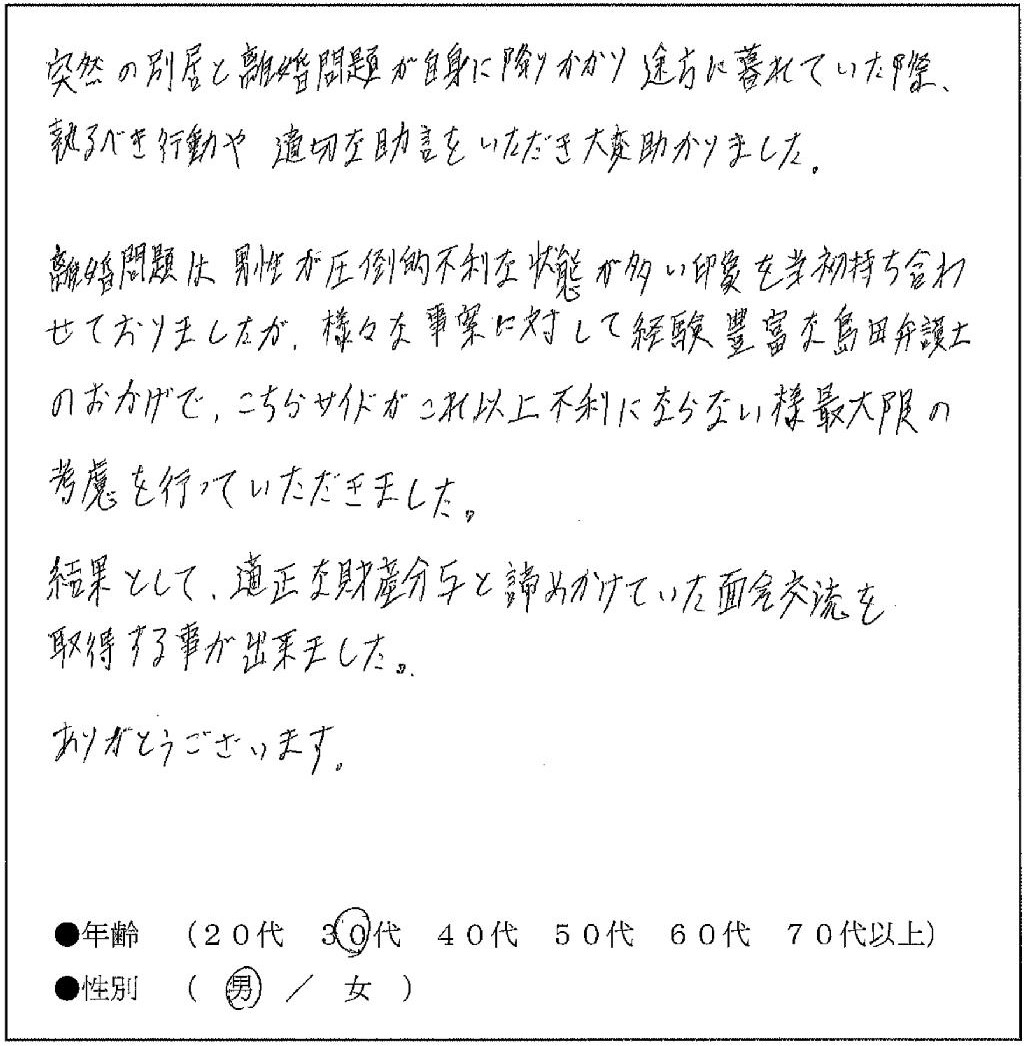 突然の別居と離婚問題が自身に降りかかり途方に暮れていた際、
執るべき行動や 適切な助言をいただき大変助かりました。
離婚問題は 男性が圧倒的不利な状態が多い印象を当初持ち合わ
せておりましたが、様々な事案に対して経験豊富な島田弁護士
のおかげで、こちらサイドがこれ以上不利にならない様最大限の
考慮を行っていただきました。
結果として、適正な財産分与と諦めかけていた面会交流を
取得する事が出来ました。
ありがとうございます。
●年齢 （２０代 ３０代 ４０代 ５０代 ６０代 ７０代以上）
●性別 （ 男 ／ 女 ）